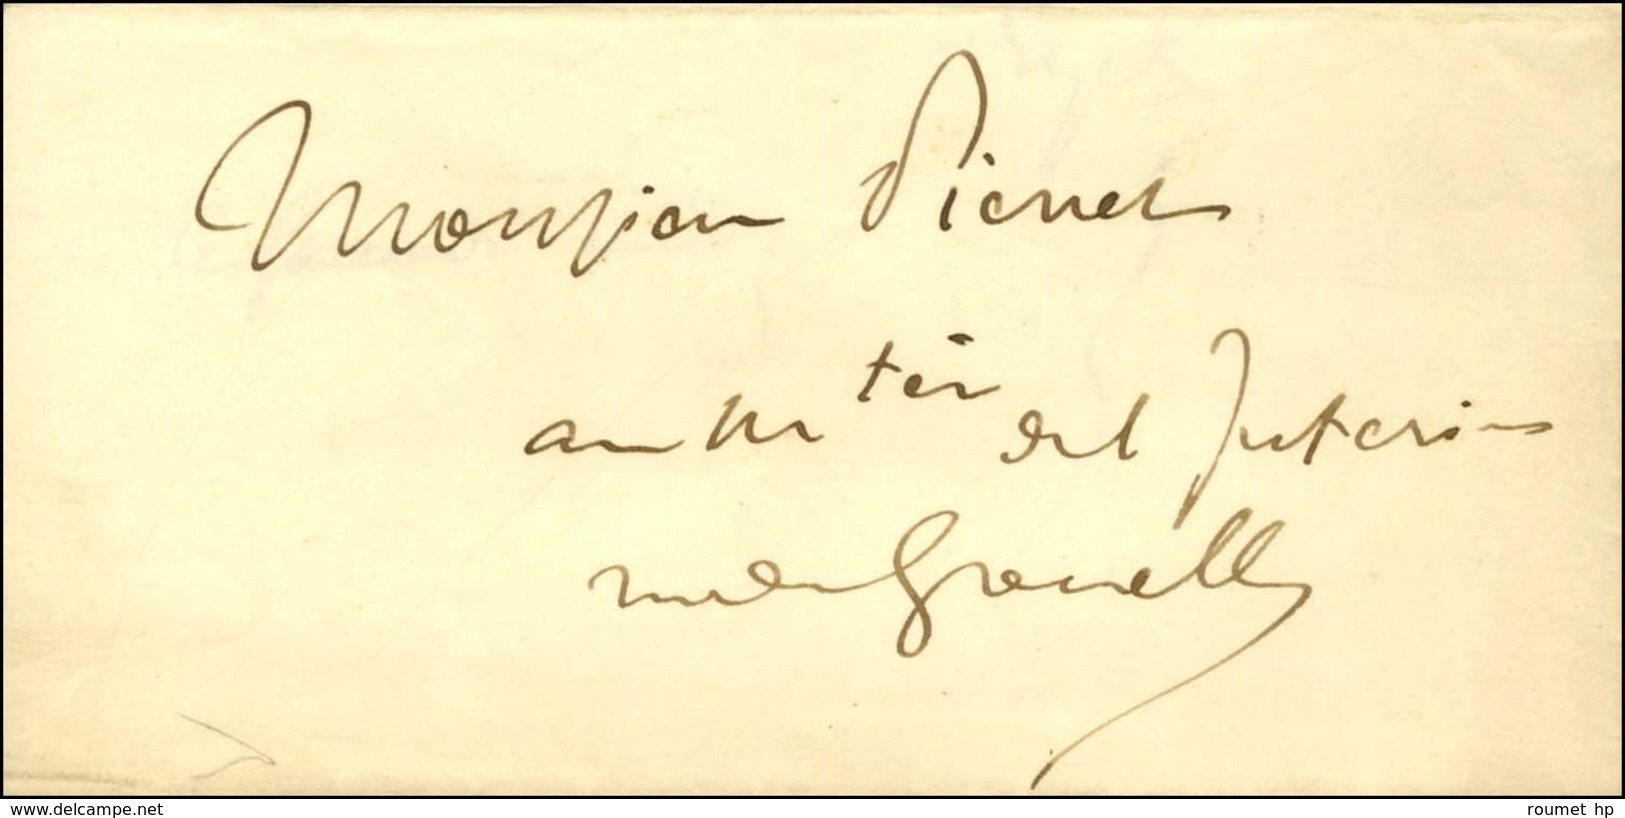 Monsieur Pierret
au M tère de l Interieur
rue de Grenelle
www.delcampe.net
roumet hp